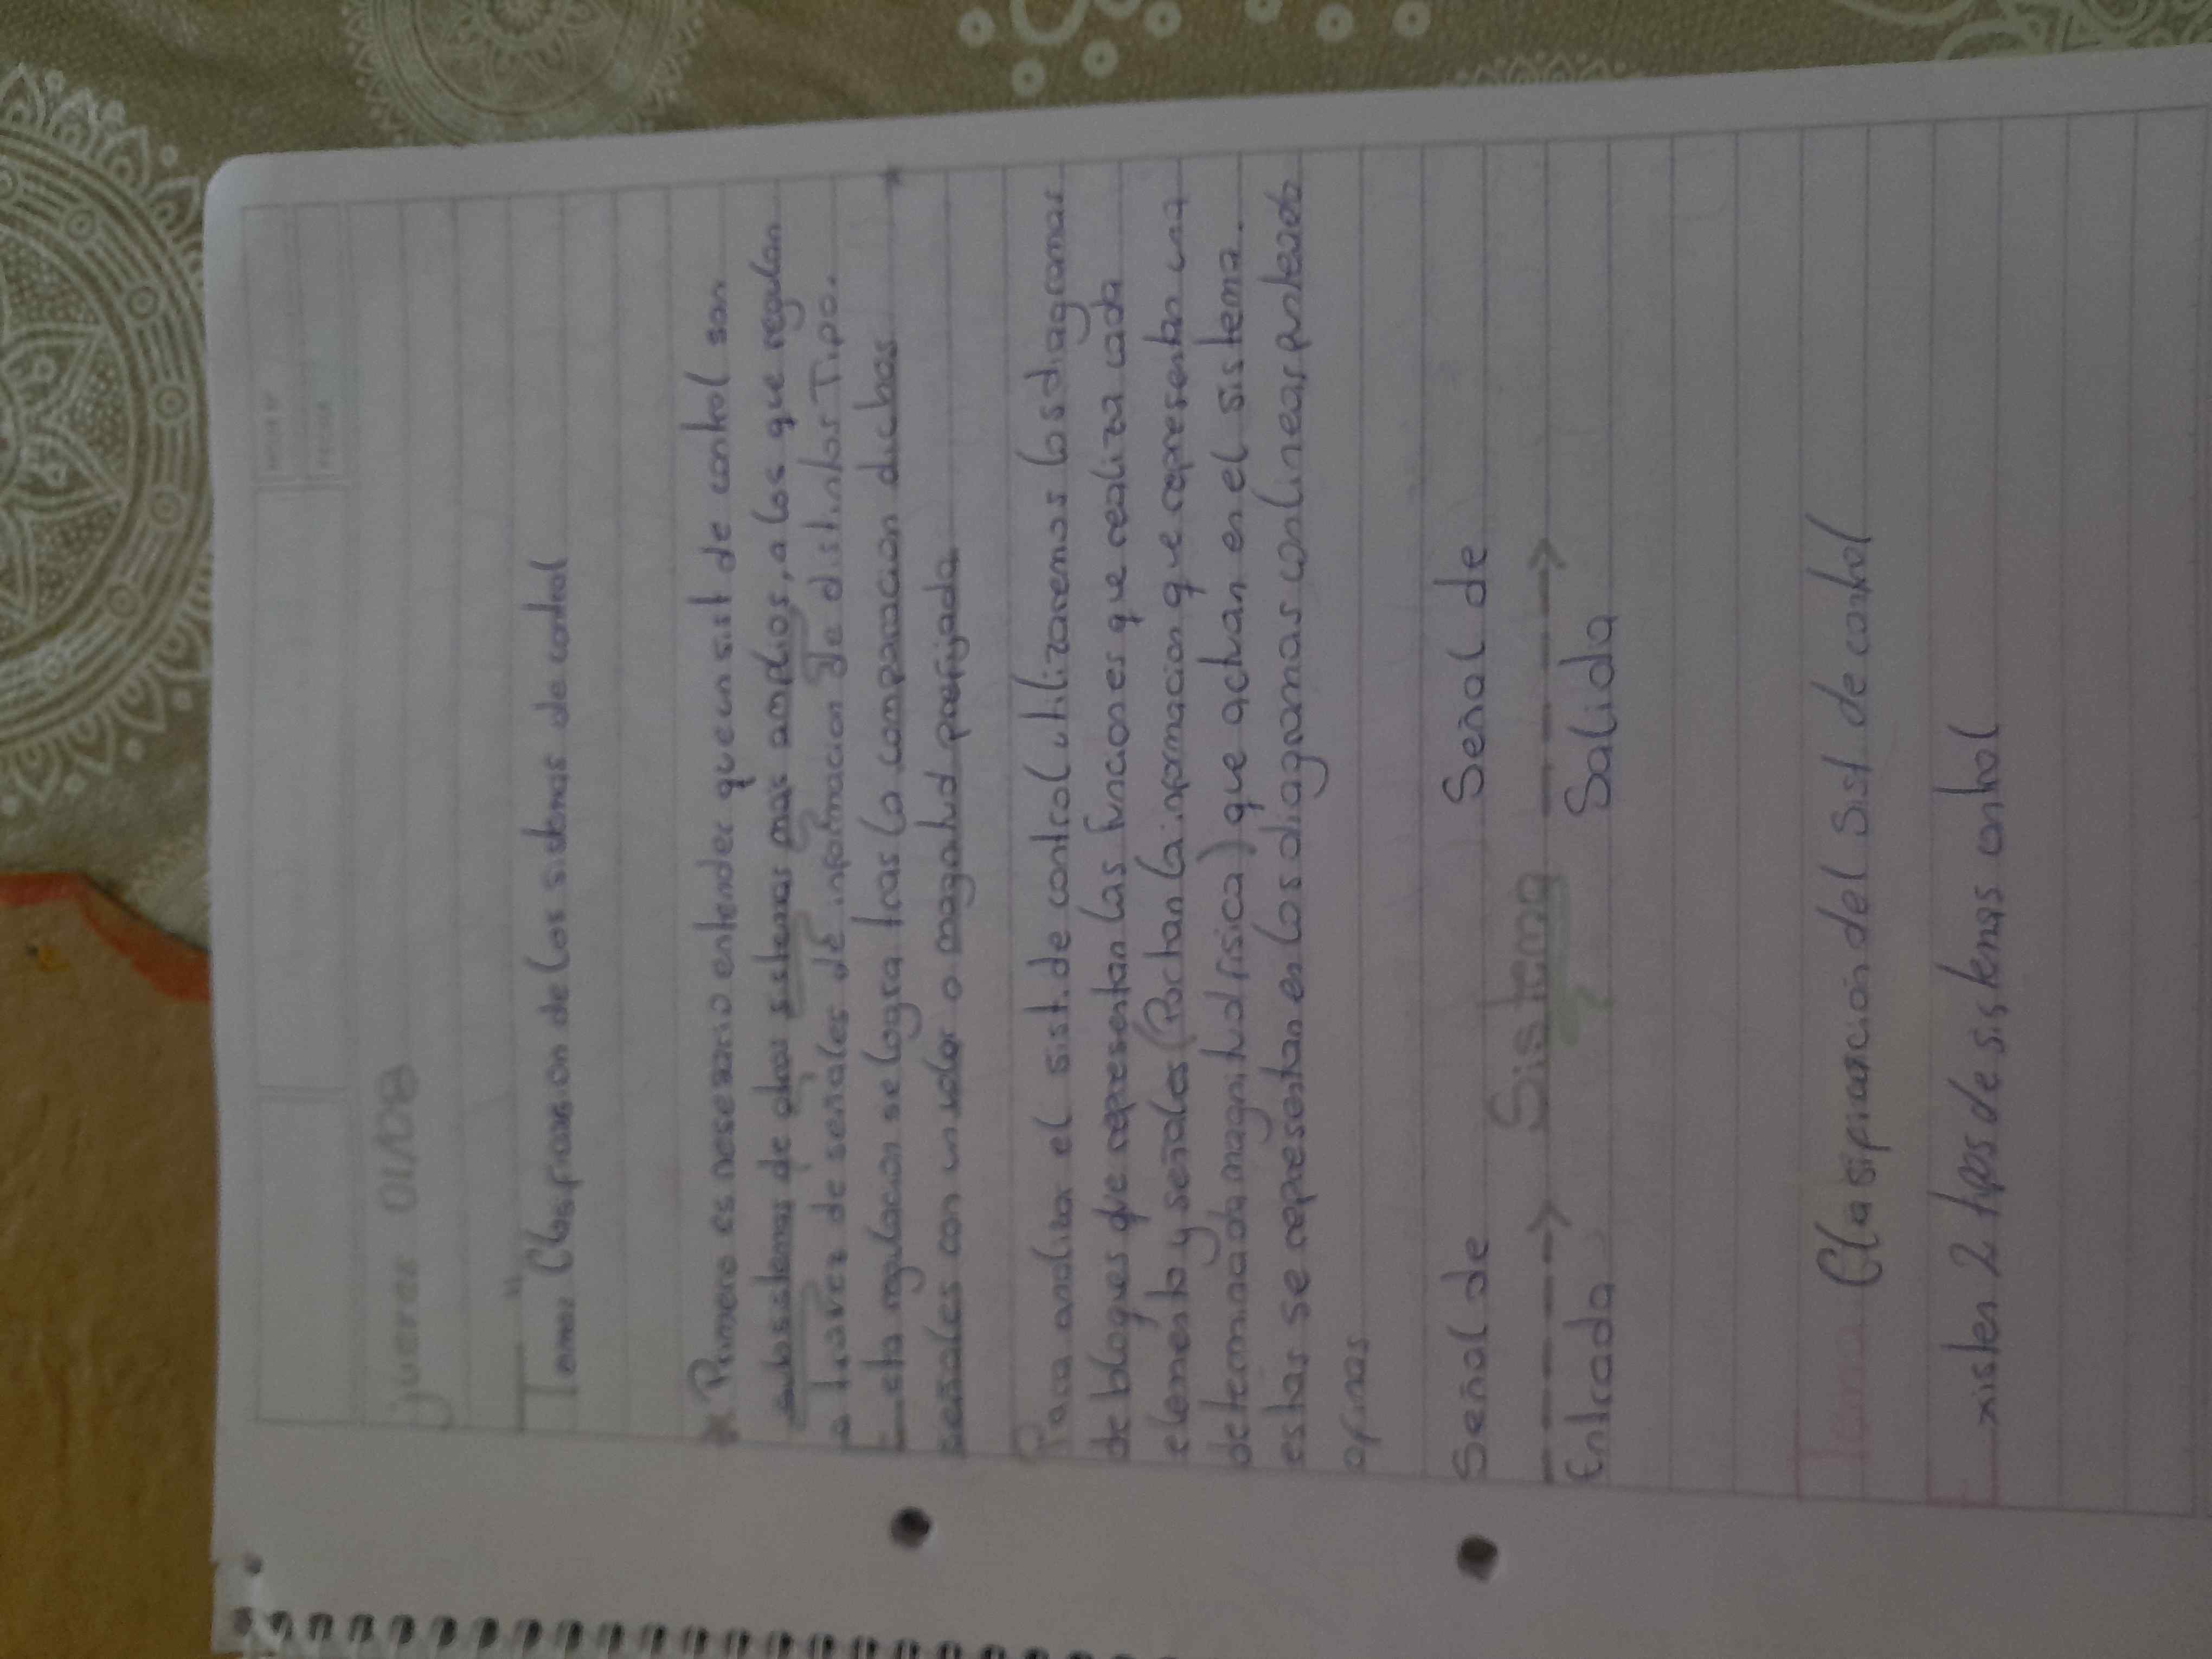 jueves 01/08
Tema: Clasificasion de los sistemas de control
Primero es nesesario entender que un sist de control son
subsistemas de otros sistemas mas amplios, a los que regulan
a travez de señales de informacion de distintos Tipo.
Esta regulacion se logra tras la comparacion dichas
señales con un valor o magnatud prefijada
Para analizar el sist. de control utilizaremos los diagramas
de bloques que representan las funciones que realiza cada
elemento y señales (Portan la informacion que representan una
determinada magnitud fisica) que actuan en el sistema.
estas se representan en los diagramas con lineas punteado
o finas
Señal de Señal de
-----> Sistema ----->
Entrada Salida
Tema: Clasificación del sist. de control
xisten 2 tipos de sistemas control